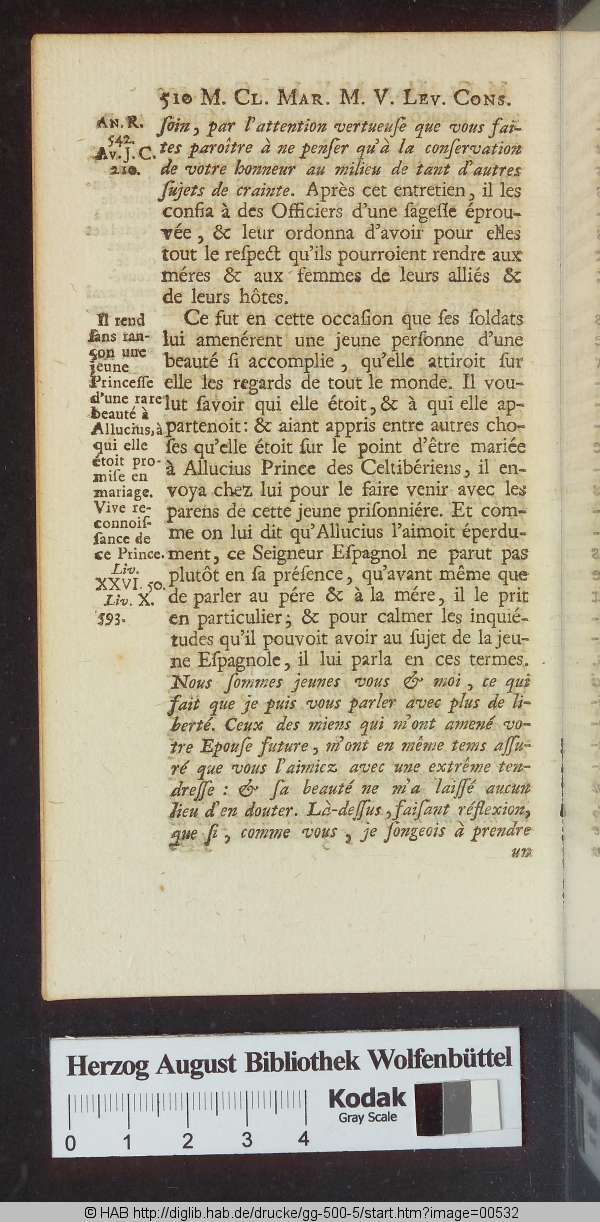 510 M. CL. MAR. M. V. LEV. CONS.
AN. R.
542.
AV. J. C.
210.
ſoin, par l'attention vertueuſe que vous fai-
tes paroître à ne penſer qu'à la conſervation
de votre honneur au milieu de tant d'autres
ſujets de crainte. Après cet entretien, il les
confia à des Officiers d'une ſageſſe éprou-
vée, & leur ordonna d'avoir pour elles
tout le reſpect qu'ils pourroient rendre aux
méres & aux femmes de leurs alliés &
de leurs hôtes.
Il rend
ſans ran-
çon une
jeune
Princeſſe
d'une rare
beauté à
Allucius, à
qui elle
étoit pro-
miſe en
mariage.
Vive re-
connoiſ-
ſance de
ce Prince.
Liv.
XXVI. 50.
Liv. X.
593.
Ce fut en cette occaſion que ſes ſoldats
lui amenérent une jeune perſonne d'une
beauté ſi accomplie, qu'elle attiroit ſur
elle les regards de tout le monde. Il vou-
lut ſavoir qui elle étoit, & à qui elle ap-
partenoit: & aiant appris entre autres cho-
ſes qu'elle étoit ſur le point d'être mariée
à Allucius Prince des Celtibériens, il en-
voya chez lui pour le faire venir avec les
parens de cette jeune priſonniére. Et com-
me on lui dit qu'Allucius l'aimoit éperdu-
ment, ce Seigneur Eſpagnol ne parut pas
plutôt en ſa préſence, qu'avant même que
de parler au pére & à la mére, il le prit
en particulier; & pour calmer les inquié-
tudes qu'il pouvoit avoir au ſujet de la jeu-
ne Eſpagnole, il lui parla en ces termes.
Nous ſommes jeunes vous & moi, ce qui
fait que je puis vous parler avec plus de li-
berté. Ceux des miens qui m'ont amené vo-
tre Epouſe future, m'ont en même tems aſſu-
ré que vous l'aimiez avec une extrême ten-
dreſſe: & ſa beauté ne m'a laiſſé aucun
lieu d'en douter. Là-deſſus, faiſant réflexion,
que ſi, comme vous, je ſongeois à prendre
un
Herzog August Bibliothek Wolfenbüttel
Kodak
Gray Scale
0 1 2 3 4
© HAB http://diglib.hab.de/drucke/gg-500-5/start.htm?image=00532